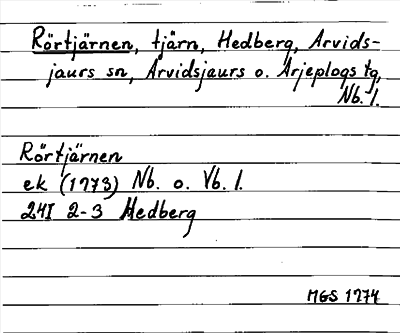 Rörtjärnen, tjärn, Hedberg, Arvids-
jaurs sn, Arvidsjaurs o. Arjeplogs tg,
Nb. l.
Rörtjärnen
ek (1973) Nb. o. Vb. l.
24I 2-3 Hedberg
MGS 1974